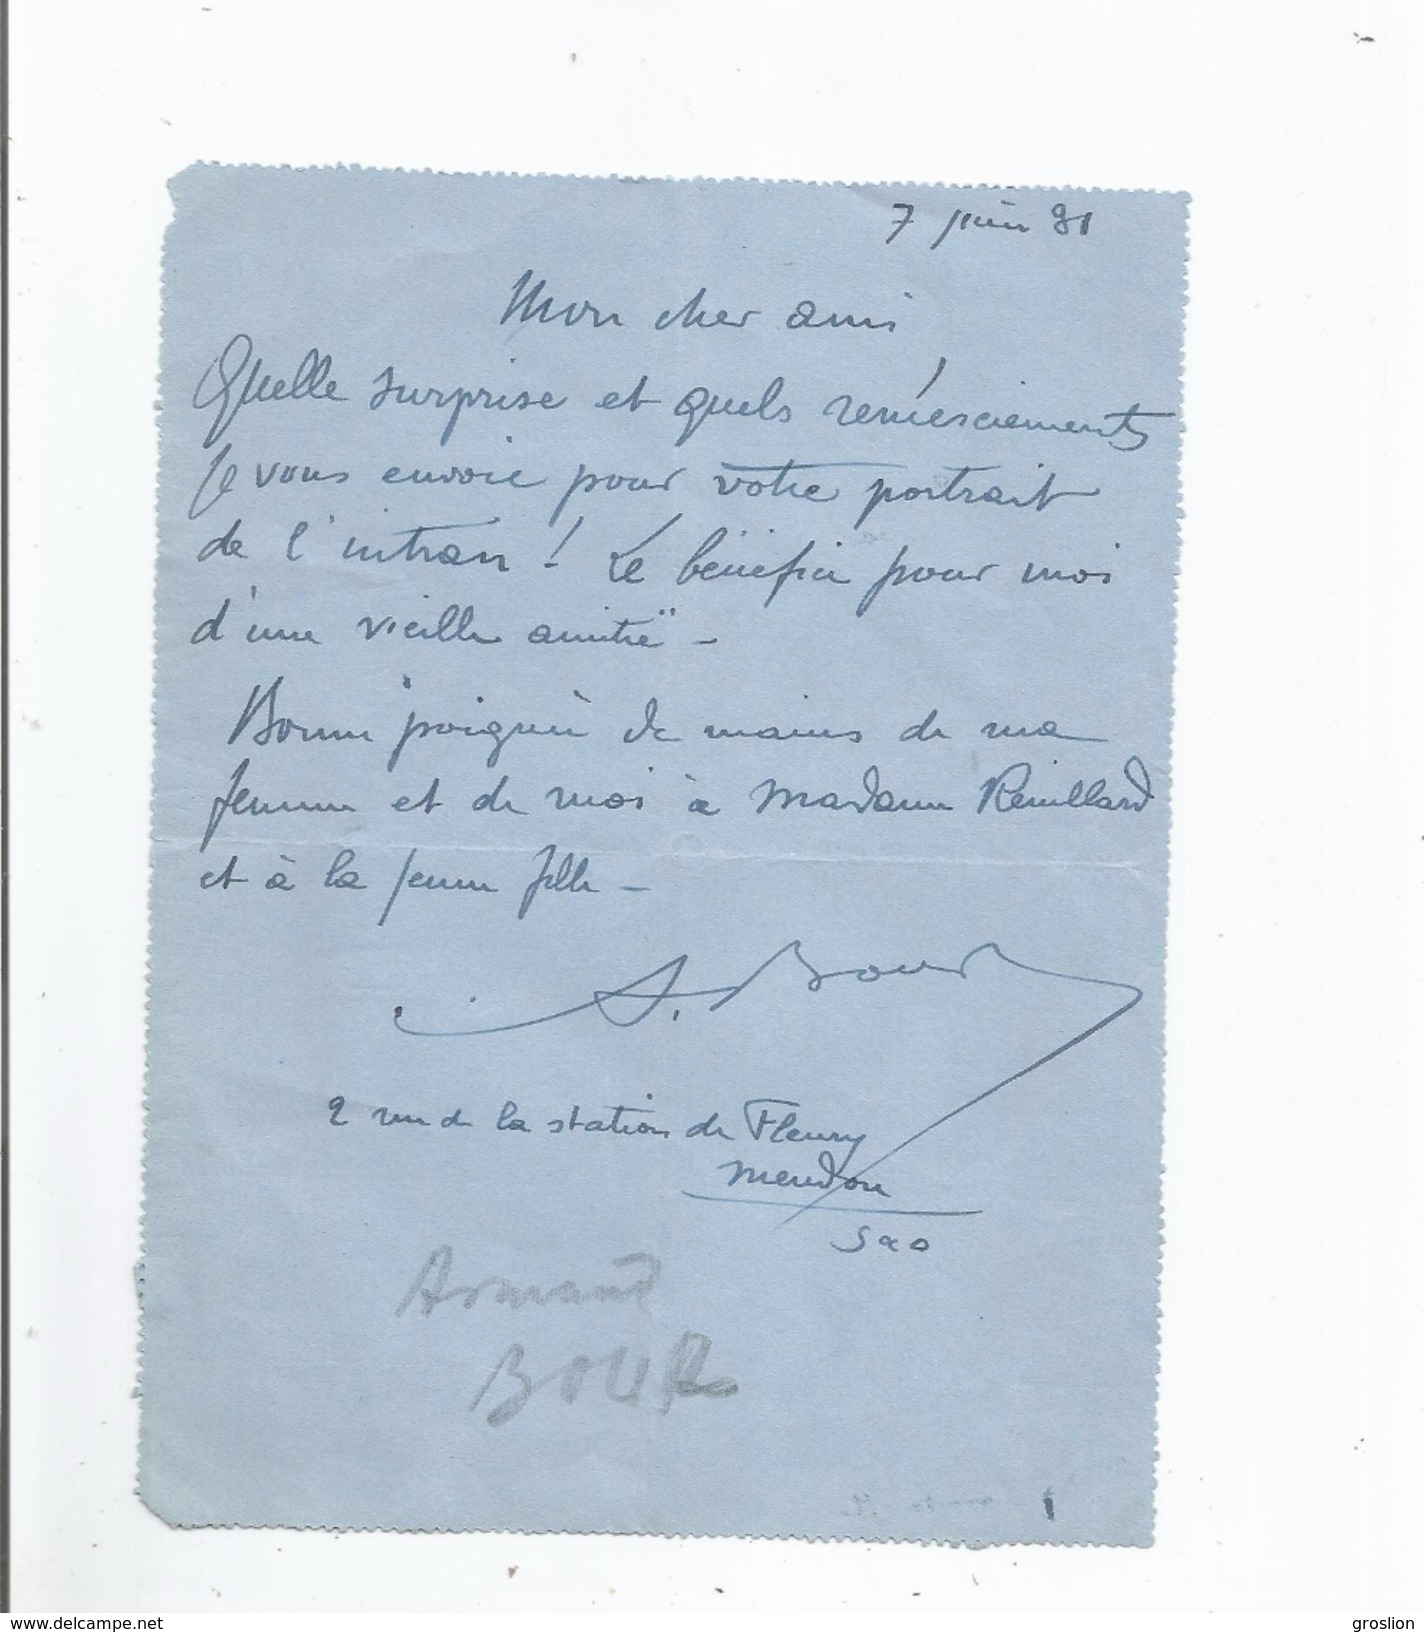 7 juin 31
Mon cher ami
Quelle surprise et quels remerciements
je vous envoie pour votre portrait
de l'intran ! Le bénéfice pour moi
d'une vieille amitié -
Bonne poignée de mains de ma
femme et de moi à Madame Reuillard
et à la jeune fille -
A. Bour
2 rue de la station de Fleury
Meudon
S&O
Armand
BOUR
www.delcampe.net
groslion